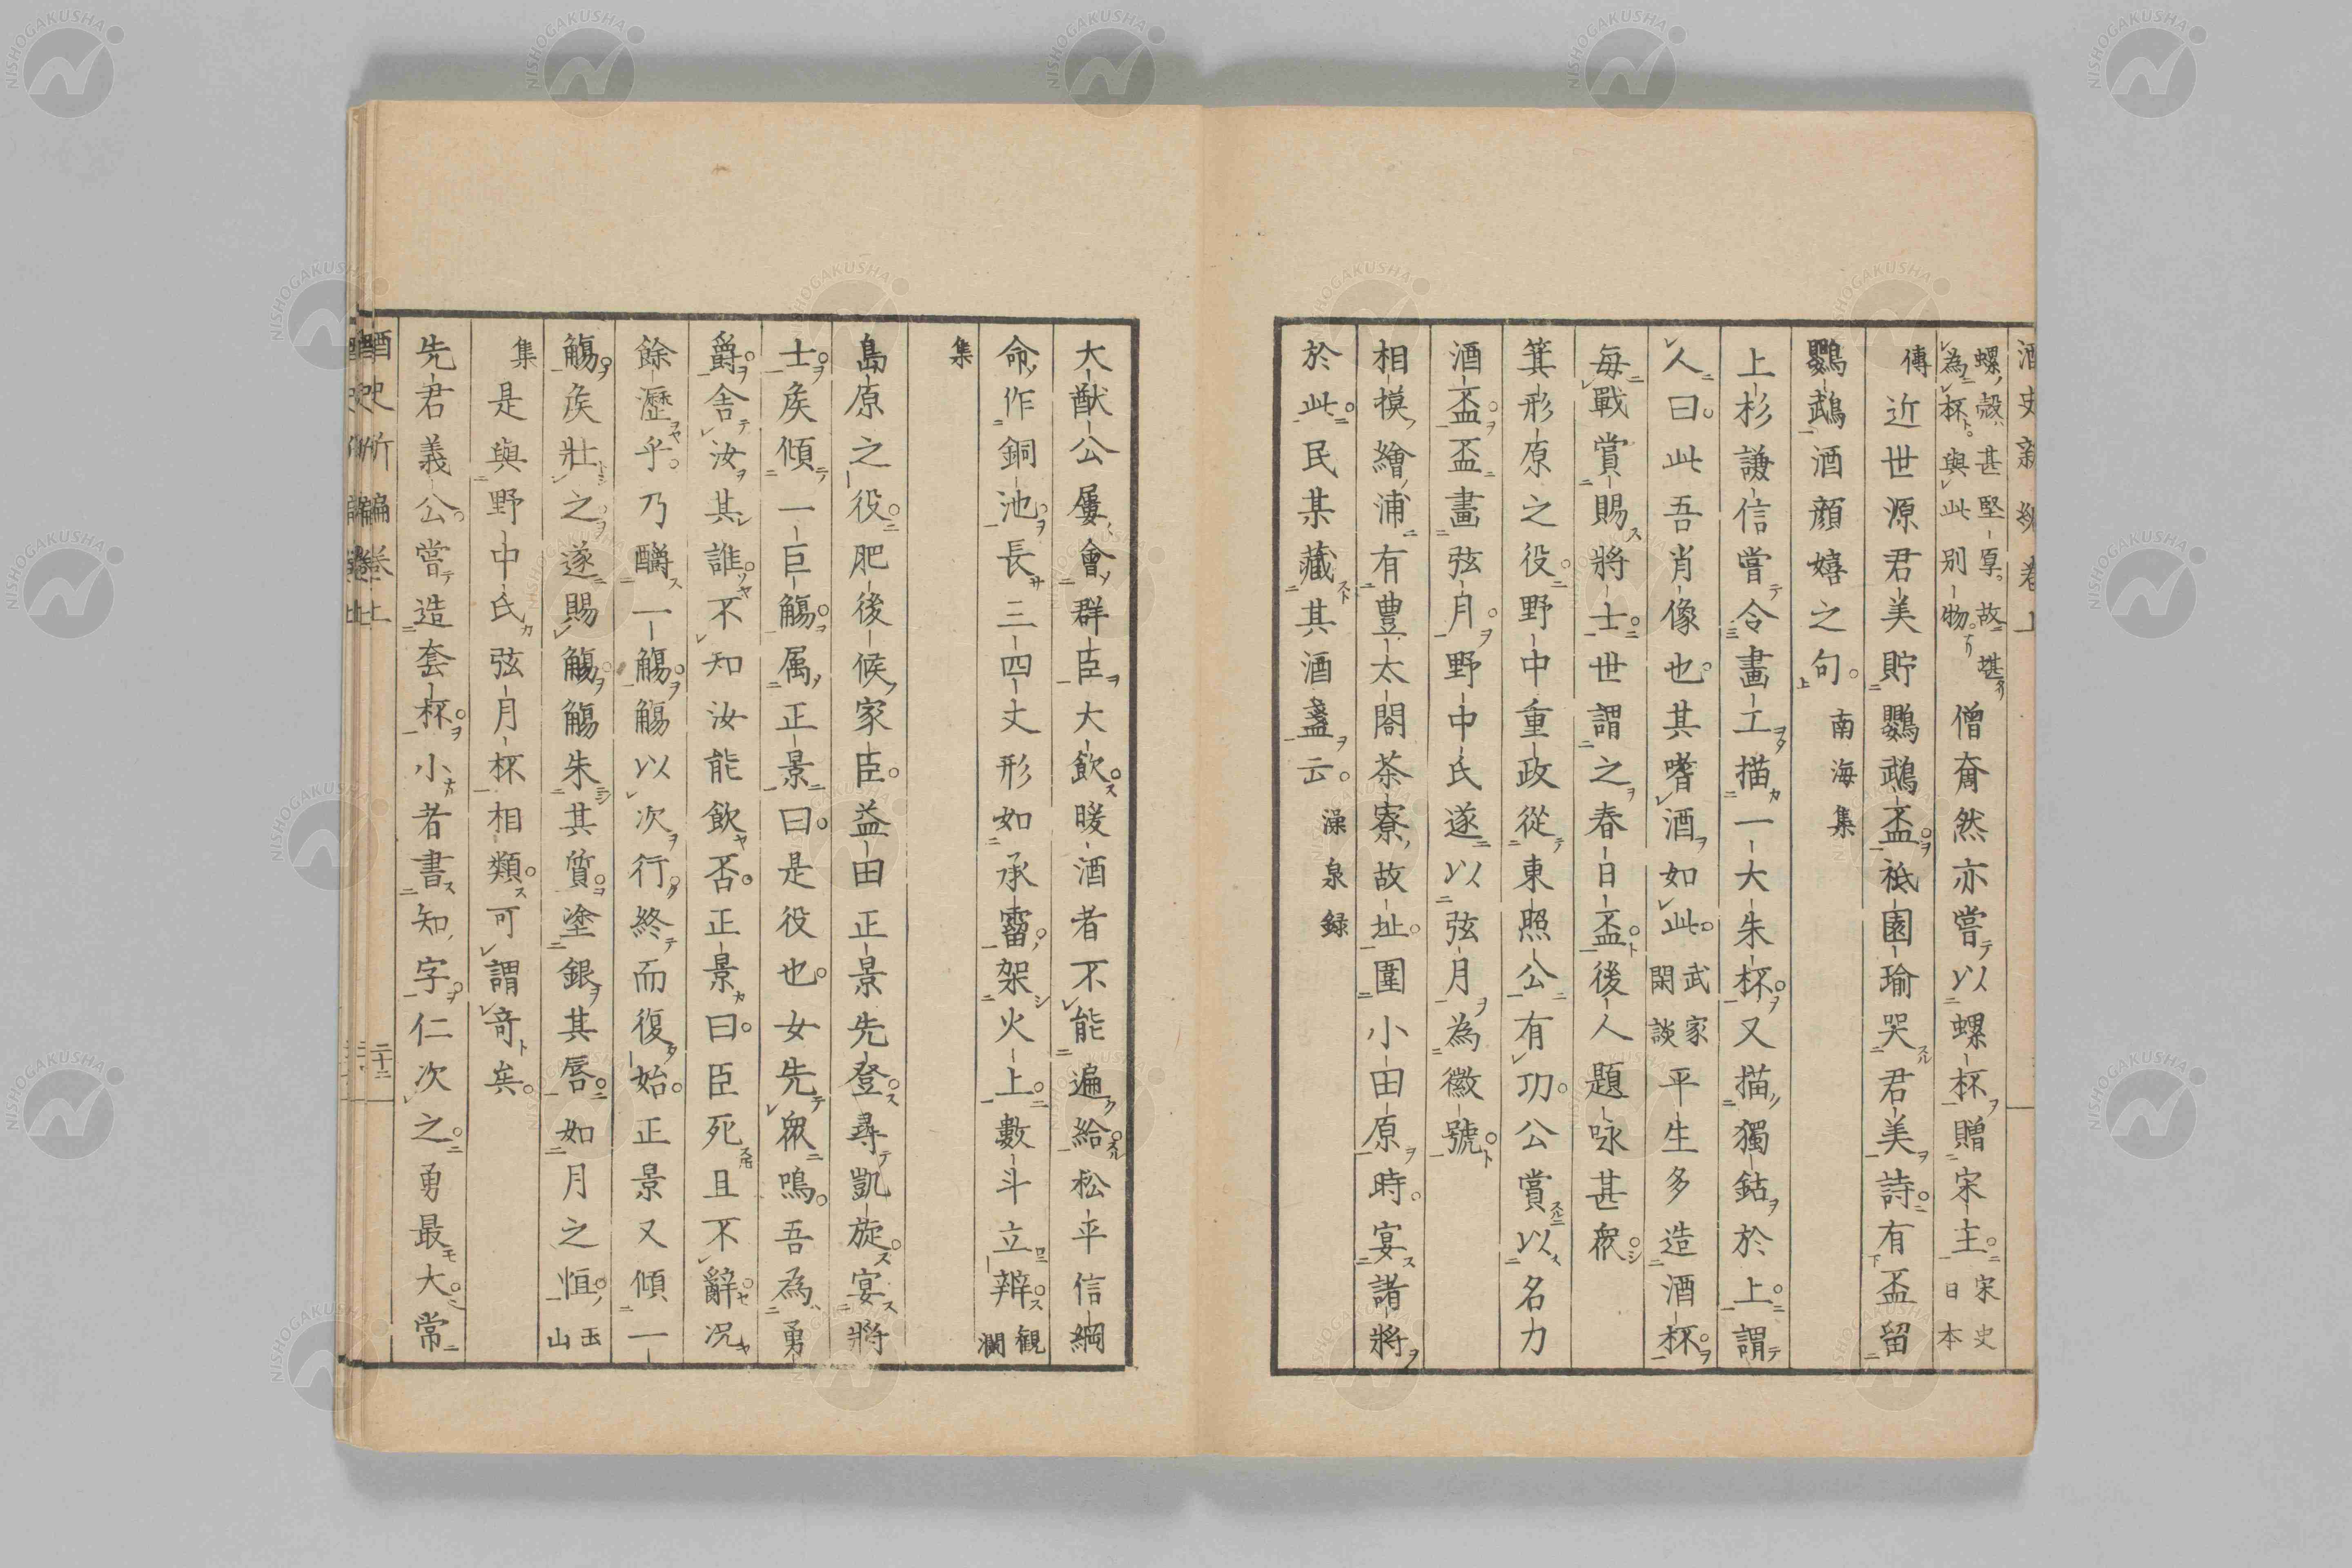 螺殻甚堅厚故堪
為杯與此別物 僧奝然亦嘗以螺杯贈宋主 宋史
日本
傳 近世源君美貯鸚鵡盃祗園瑜哭君美詩有盃留
鸚鵡酒顔嬉之句 南海集
上杉謙信嘗令畫工描一大朱杯又描獨鈷於上謂
人曰此吾肖像也其嗜酒如此 武家
閑談 平生多造酒杯
毎戰賞賜將士世謂之春日盃後人題咏甚衆
箕形原之役野中重政從東照公有功公賞以名力
酒盃盃畫弦月野中氏遂以弦月為徽號
相模繪浦有豊太閤茶寮故址圍小田原時宴諸將
於此民某藏其酒盞云 澡泉録
大猷公屢會群臣大飲暖酒者不能遍給松平信綱
命作銅池長三四丈形如承霤架火上數斗立辨 觀
瀾
集
島原之役肥後候家臣益田正景先登尋凱旋宴將
士矦傾一巨觴属正景曰是役也女先衆鳴吾為勇
爵舍汝其誰不知汝能飲否正景曰臣死且不辭况
餘瀝乎乃釂一觴觴以次行終而復始正景又傾一
觴矦壯之遂賜觴觴朱其質塗銀其唇如月之恒 玉
山
集 是與野中氏弦月杯相類可謂奇矣
先君義公嘗造套杯小者書知字仁次之勇最大常
二十二
NISHOGAKUSHA